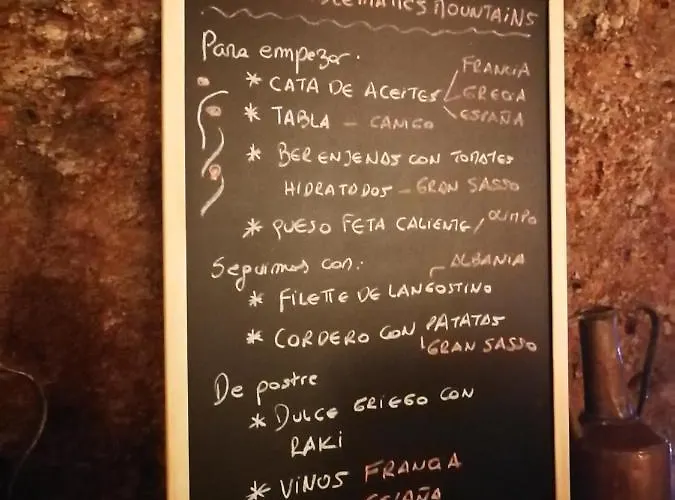 MOUNTAINS
Para empezar.
* CATA DE ACEITES
FRANCIA
GRECIA
ESPAÑA
* TABLA - CANIGO
* BERENJENAS CON TOMATES
HIDRATADOS - GRAN SASSO
* QUESO FETA CALIENTE / OLIMPO
Seguimos con:
ALBANIA
* FILETTE DE LANGOSTINO
* CORDERO CON PATATAS
GRAN SASSO
De postre
* DULCE GRIEGO CON
RAKI
* VINOS FRANCIA
ESPAÑA